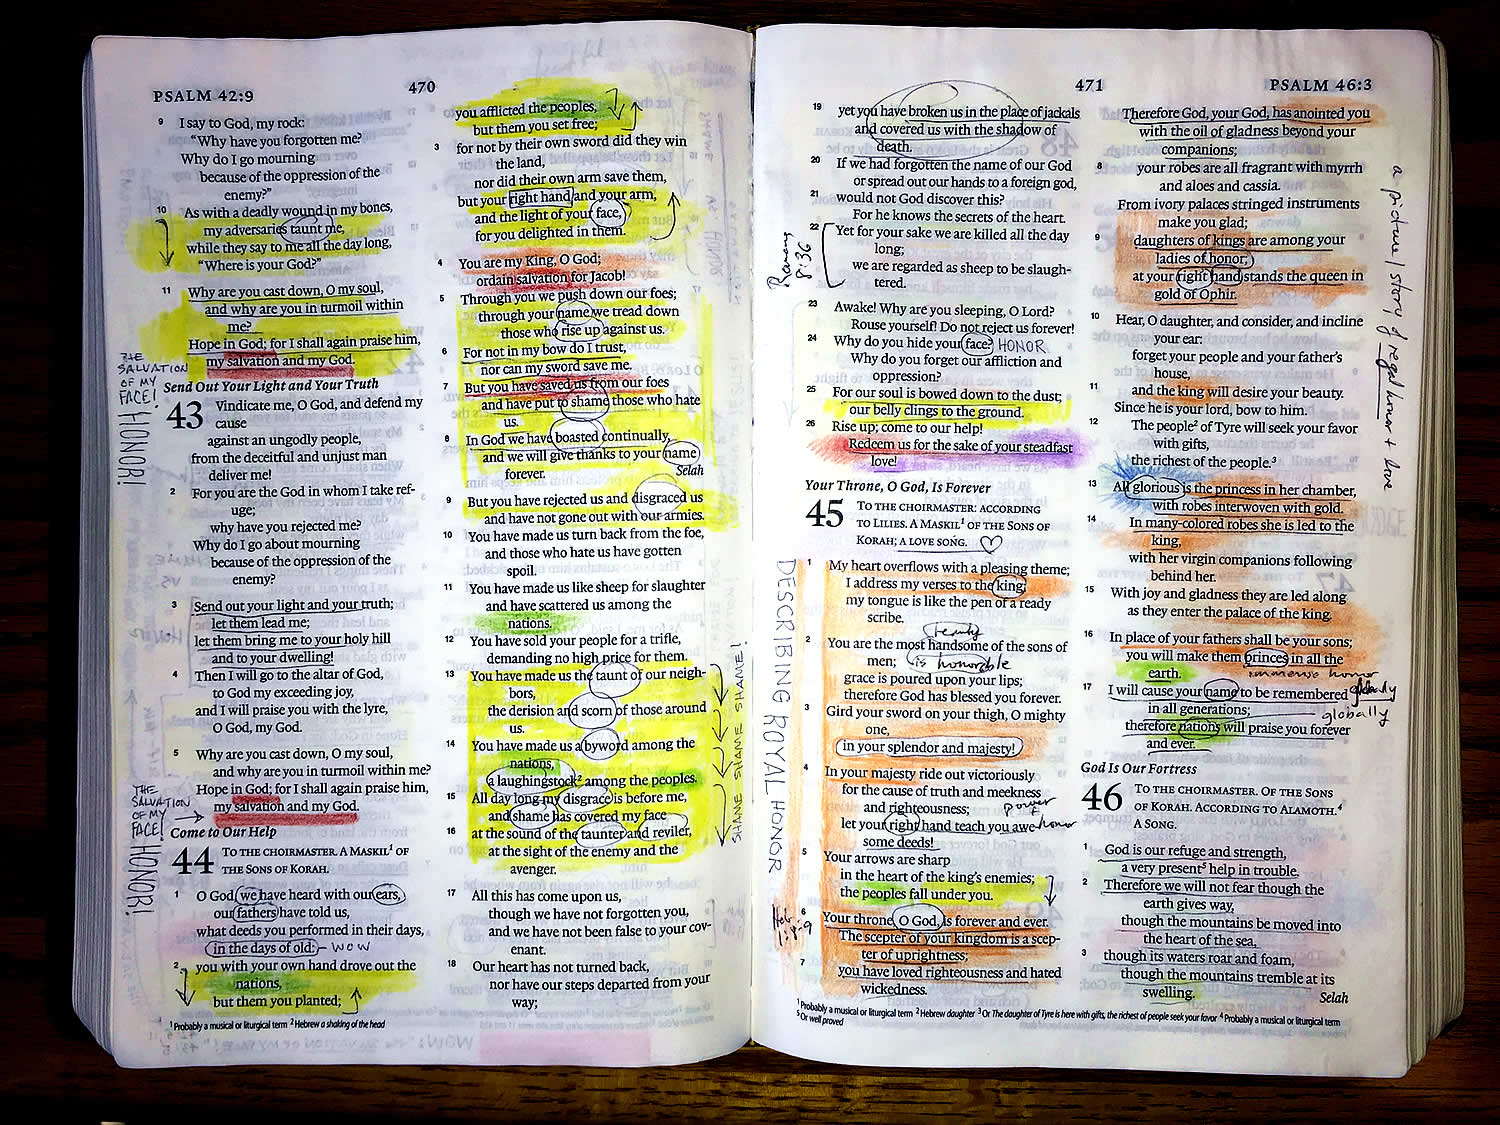 PSALM 42:9
470
9 I say to God, my rock:
"Why have you forgotten me?
Why do I go mourning
because of the oppression of the
enemy?"
10 As with a deadly wound in my bones,
my adversaries taunt me,
while they say to me all the day long,
"Where is your God?"
11 Why are you cast down, O my soul,
and why are you in turmoil within
me?
Hope in God; for I shall again praise him,
my salvation and my God.
THE
SALVATION
OF MY
FACE!
HONOR!
Send Out Your Light and Your Truth
43 Vindicate me, O God, and defend my
cause
against an ungodly people,
from the deceitful and unjust man
deliver me!
2 For you are the God in whom I take ref-
uge;
why have you rejected me?
Why do I go about mourning
because of the oppression of the
enemy?
3 Send out your light and your truth;
let them lead me;
let them bring me to your holy hill
and to your dwelling!
4 Then I will go to the altar of God,
to God my exceeding joy,
and I will praise you with the lyre,
O God, my God.
5 Why are you cast down, O my soul,
and why are you in turmoil within me?
Hope in God; for I shall again praise him,
my salvation and my God.
THE
SALVATION
OF MY
FACE!
HONOR!
Come to Our Help
44 TO THE CHOIRMASTER. A MASKIL1 OF
THE SONS OF KORAH.
1 O God, we have heard with our ears,
our fathers have told us,
what deeds you performed in their days,
in the days of old: - WOW
2 you with your own hand drove out the
nations,
but them you planted;
you afflicted the peoples,
but them you set free;
3 for not by their own sword did they win
the land,
nor did their own arm save them,
but your right hand and your arm,
and the light of your face,
for you delighted in them.
4 You are my King, O God;
ordain salvation for Jacob!
5 Through you we push down our foes;
through your name we tread down
those who rise up against us.
6 For not in my bow do I trust,
nor can my sword save me.
7 But you have saved us from our foes
and have put to shame those who hate
us.
8 In God we have boasted continually,
and we will give thanks to your name
forever. Selah
9 But you have rejected us and disgraced us
and have not gone out with our armies.
10 You have made us turn back from the foe,
and those who hate us have gotten
spoil.
11 You have made us like sheep for slaughter
and have scattered us among the
nations.
12 You have sold your people for a trifle,
demanding no high price for them.
13 You have made us the taunt of our neigh-
bors,
the derision and scorn of those around
us.
14 You have made us a byword among the
nations,
a laughingstock2 among the peoples.
15 All day long my disgrace is before me,
and shame has covered my face
16 at the sound of the taunter and reviler,
at the sight of the enemy and the
avenger.
SHAME SHAME SHAME!
17 All this has come upon us,
though we have not forgotten you,
and we have not been false to your cov-
enant.
18 Our heart has not turned back,
nor have our steps departed from your
way;
1 Probably a musical or liturgical term 2 Hebrew a shaking of the head
471
PSALM 46:3
19 yet you have broken us in the place of jackals
and covered us with the shadow of
death.
20 If we had forgotten the name of our God
or spread out our hands to a foreign god,
21 would not God discover this?
For he knows the secrets of the heart.
22 Yet for your sake we are killed all the day
long;
we are regarded as sheep to be slaugh-
tered.
Romans
8:36
23 Awake! Why are you sleeping, O Lord?
Rouse yourself! Do not reject us forever!
24 Why do you hide your face? HONOR
Why do you forget our affliction and
oppression?
25 For our soul is bowed down to the dust;
our belly clings to the ground.
26 Rise up; come to our help!
Redeem us for the sake of your steadfast
love!
Your Throne, O God, Is Forever
45 TO THE CHOIRMASTER: ACCORDING
TO LILIES. A MASKIL1 OF THE SONS OF
KORAH; A LOVE SONG. ♡
1 My heart overflows with a pleasing theme;
I address my verses to the king;
my tongue is like the pen of a ready
scribe.
beauty
2 You are the most handsome of the sons of
men; is honorable
grace is poured upon your lips;
therefore God has blessed you forever.
3 Gird your sword on your thigh, O mighty
one,
in your splendor and majesty!
4 In your majesty ride out victoriously
for the cause of truth and meekness
and righteousness; power +
let your right hand teach you awe- honor
some deeds!
5 Your arrows are sharp
in the heart of the king's enemies;
the peoples fall under you.
DESCRIBING ROYAL HONOR
6 Your throne, O God, is forever and ever.
The scepter of your kingdom is a scep-
ter of uprightness;
7 you have loved righteousness and hated
wickedness.
Heb
1:8-9
Therefore God, your God, has anointed you
with the oil of gladness beyond your
companions;
8 your robes are all fragrant with myrrh
and aloes and cassia.
From ivory palaces stringed instruments
make you glad;
9 daughters of kings are among your
ladies of honor;
at your right hand stands the queen in
gold of Ophir.
a picture / story of regal honor + love
10 Hear, O daughter, and consider, and incline
your ear:
forget your people and your father's
house,
11 and the king will desire your beauty.
Since he is your lord, bow to him.
12 The people2 of Tyre will seek your favor
with gifts,
the richest of the people.3
13 All glorious is the princess in her chamber,
with robes interwoven with gold.
14 In many-colored robes she is led to the
king,
with her virgin companions following
behind her.
15 With joy and gladness they are led along
as they enter the palace of the king.
16 In place of your fathers shall be your sons;
you will make them princes in all the
earth. immense honor
17 I will cause your name to be remembered globally
in all generations; globally
therefore nations will praise you forever
and ever.
God Is Our Fortress
46 TO THE CHOIRMASTER. OF THE SONS
OF KORAH. ACCORDING TO ALAMOTH.4
A SONG.
1 God is our refuge and strength,
a very present5 help in trouble.
2 Therefore we will not fear though the
earth gives way,
though the mountains be moved into
the heart of the sea,
3 though its waters roar and foam,
though the mountains tremble at its
swelling. Selah
1 Probably a musical or liturgical term 2 Hebrew daughter 3 Or The daughter of Tyre is here with gifts, the richest of people seek your favor 4 Probably a musical or liturgical term
5 Or well proved